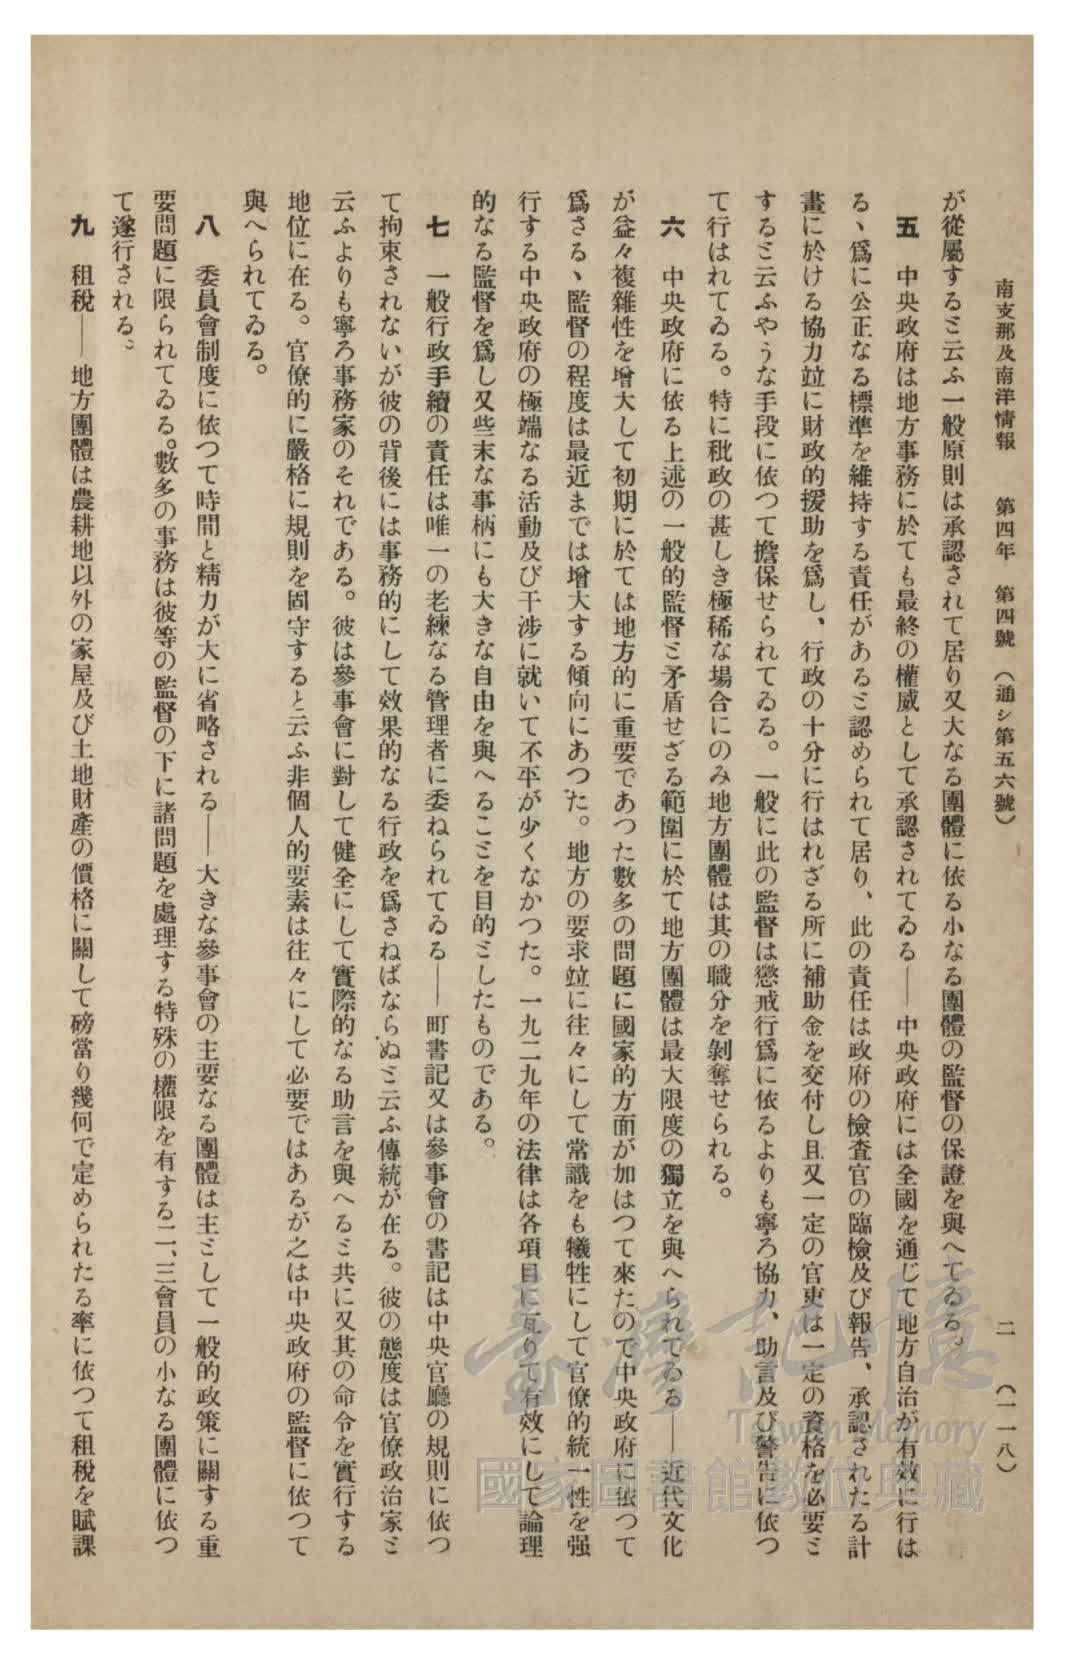 南支那及南洋情報　第四年　第四號（通シ第五六號）　二（一一八）
が從屬するミ云ふ一般原則は承認されて居り又大なる團體に依る小なる團體の監督の保證を與へてゐる。
五　中央政府は地方事務に於ても最終の權威として承認されてゐる——中央政府には全國を通じて地方自治が有效に行は
る丶爲に公正なる標準を維持する責任があるミ認められて居り、此の責任は政府の檢査官の臨檢及び報告、承認されたる計
畫に於ける協力竝に財政的援助を爲し、行政の十分に行はれざる所に補助金を交付し且又一定の官吏は一定の資格を必要ミ
するミ云ふやうな手段に依つて擔保せられてゐる。一般に此の監督は懲戒行爲に依るよりも寧ろ協力、助言及び警告に依つ
て行はれてゐる。特に秕政の甚しき極稀な場合にのみ地方團體は其の職分を剝奪せられる。
六　中央政府に依る上述の一般的監督ミ矛盾せざる範圍に於て地方團體は最大限度の獨立を與へられてゐる——近代文化
が益々複雜性を增大して初期に於ては地方的に重要であつた數多の問題に國家的方面が加はつて來たので中央政府に依つて
爲さる丶監督の程度は最近までは增大する傾向にあつた。地方の要求竝に往々にして常識をも犧牲にして官僚的統一性を强
行する中央政府の極端なる活動及び干涉に就いて不平が少くなかつた。一九二九年の法律は各項目に亙りて有效にして論理
的なる監督を爲し又些末な事柄にも大きな自由を與へるこミを目的ミしたものである。
七　一般行政手續の責任は唯一の老練なる管理者に委ねられてゐる——町書記又は參事會の書記は中央官廳の規則に依つ
て拘束されないが彼の背後には事務的にして效果的なる行政を爲さねばならぬミ云ふ傳統が在る。彼の態度は官僚政治家ミ
云ふよりも寧ろ事務家のそれである。彼は參事會に對して健全にして實際的なる助言を與へるミ共に又其の命令を實行する
地位に在る。官僚的に嚴格に規則を固守すると云ふ非個人的要素は往々にして必要ではあるが之は中央政府の監督に依つて
與へられてゐる。
八　委員會制度に依つて時間と精力が大に省略される——大きな參事會の主要なる團體は主ミして一般的政策に關する重
要問題に限られてゐる。數多の事務は彼等の監督の下に諸問題を處理する特殊の權限を有する二、三會員の小なる團體に依つ
て遂行される。
九　租稅——地方團體は農耕地以外の家屋及び土地財產の價格に關して磅當り幾何で定められたる率に依つて租稅を賦課
臺灣記憶
Taiwan Memory
國家圖書館數位典藏